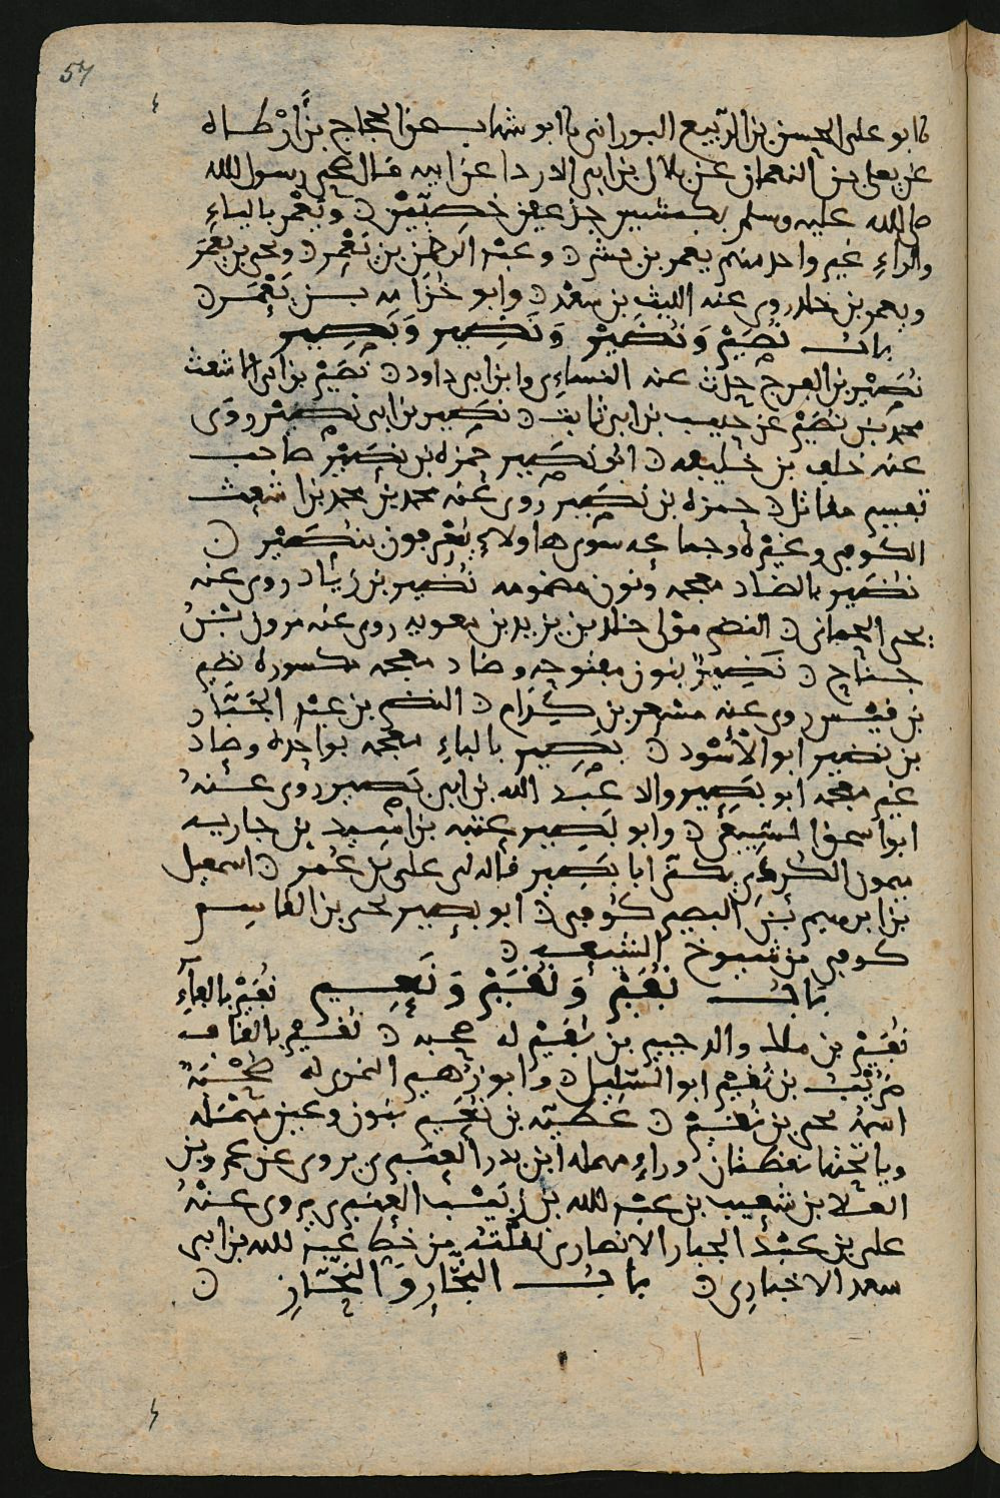 57
نا بو على الحسن بن الربيع البورانى نا ابو شهاب عن الحجاج بن أرْطاه
عن يعلى بن النعمان عن بلال بن ابى الدردا عن ابيه قال ضحى رسول الله
صلى الله عليه وسلم بكبشين جذعين خصيّيْن ۞ ويَعْمر بالياءِ
والراءِ غير واحد منهم يعمر بن بشر ۞ وعبد الرحمن بن يَعْمر ۞ ويحيى بن يعمَر
ويعمر بن خلد روى عنه الليث بن سعْد ۞ وابو خزَامه بن يَعْمَر ۞
باب نُصَيْر وَنُضَيْر وَنَضِير وَبَصِير
نُصَيْر بن الفرج حدث عنه النساءِى وابن ابى داود ۞ نُصَيْر بن ابى الاشعث
محمد بن نُصَيْر عن حبيب بن ابى ثابت ۞ نصَير بن ابى نُصَيْر روَى
عنه خلف بن خليفه ۞ ابو نُصَير حمزه بن نُصَيْر صاحب
تفسير مقاتل ۞ حمزه بن نُصَير روى عنه محمد بن محمد بن اشعث
الكوفى وغيْره وجماعه سوى هاولاءِ يُعْرفون بنُصَيْر ۞
نُضَير بالضاد معجمه ونون مضمومه نُضَير بن زيَاد روى عنه
يحيى الحمانى ۞ النضر موْلى خلد بن يزيد بن معويه روى عنه مرون بْنُ
جناح ۞ نَضِيْر بنون مفتوحه وضاد معجمه مكسوره نضير
بن قيْس روى عنه مسْعر بن كِدَام ۞ النضر بن عبْد الجَبَّار
بن نضير ابو الأسْود ۞ بصِير بالباءِ معجمه بواحده وصاد
غير معجمه ابو بَصِير والد عَبْد الله بن ابى بَصير روى عنْهُ
ابو اسحق السَّبيْعى ۞ وابو بَصِير عتبه بن اسيد بن جاريه
ميمون الكُردى يكنى ابا بَصِير قاله لى على بن عُمر ۞ اسمعيل
بن ابرهيم بْن البصير كُوفى ۞ ابو بصِير يحيى بن القاسِم
كوفى من شيوخ الشيعه ۞
بابُ نُفَيْر وَنُقَيْر وَنَعِير نُفَيْر بالفآءِ
نُفَيْر بن ملك والد جبير بن نُفَيْر له صحبه ۞ نُقَير بالقاف
ضُرَيْب بن نُقَيْر ابو السَّلِيل ۞ وابو زُهير النميرى له صُحْبَة
اسْمُه يحيى بن نُقَير ۞ عَطيَّه بن نُعَير بنون وعين مهْمَله
ويا تحتها نقطتان وراءِ مهمله ابن بدر العنبرى يروى عن عمرو بن
العلا بن شعيب بن عبْد الله بن زبَيْب العنبرى يروى عنْهُ
على بن عبْد الجبار الانصارى نقلتُه من خط عبْد الله بن ابى
سعد الاخبارى ۞ بابُ البَخَّارِ وَالنَّجَّارِ ۞